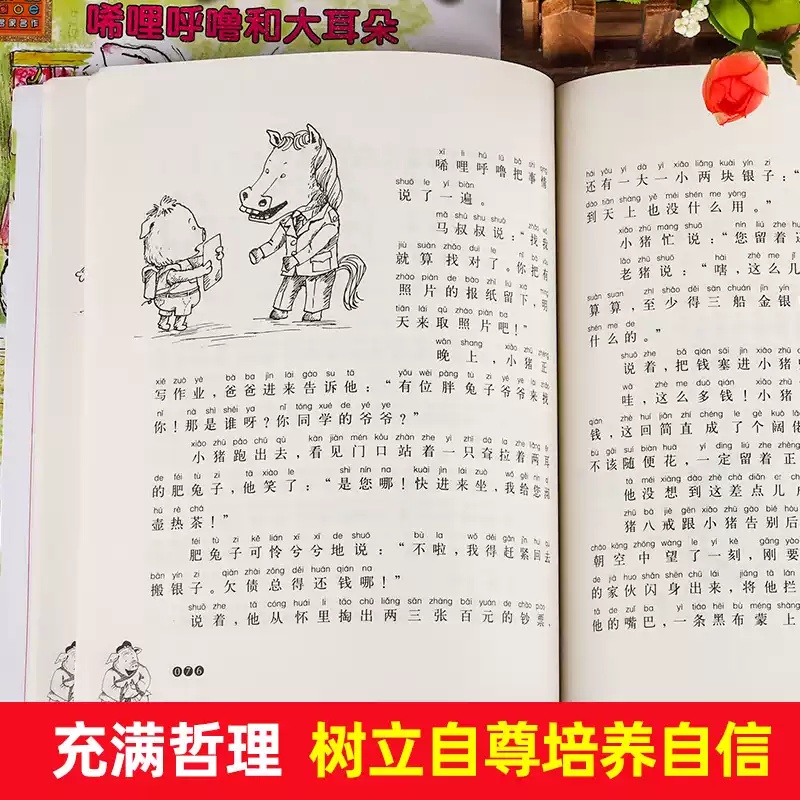 唏哩呼噜和大耳朵
xī li hū lū bǎ shì qing
唏哩呼噜把事情
shuō le yí biàn
说了一遍。
mǎ shū shu shuō zhǎo wǒ
马叔叔说：“找我
jiù suàn zhǎo duì le nǐ bǎ yǒu
就算找对了。你把有
zhào piàn de bào zhǐ liú xià míng
照片的报纸留下，明
tiān lái qǔ zhào piàn ba
天来取照片吧！”
wǎn shang xiǎo zhū zhèng
晚上，小猪正
xiě zuò yè bà ba jìn lái gào su tā yǒu wèi pàng tù zi yé ye lái zhǎo
写作业，爸爸进来告诉他：“有位胖兔子爷爷来找
nǐ nà shì shéi ya nǐ tóng xué de yé ye
你！那是谁呀？你同学的爷爷？”
xiǎo zhū pǎo chū qù kàn jiàn mén kǒu zhàn zhe yì zhī dā la zhe liǎng ěr
小猪跑出去，看见门口站着一只耷拉着两耳
de féi tù zi tā xiào le shì nín na kuài jìn lái zuò wǒ gěi nín
的肥兔子，他笑了：“是您哪！快进来坐，我给您沏
hú rè chá
壶热茶！”
féi tù zi kě lián xī xī de shuō bù la wǒ děi gǎn jǐn huí qù
肥兔子可怜兮兮地说：“不啦，我得赶紧回去
bān yín zi qiàn zhài zǒng děi huán qián na
搬银子。欠债总得还钱哪！”
shuō zhe tā cóng huái li tāo chū liǎng sān zhāng bǎi yuán de chāo piào
说着，他从怀里掏出两三张百元的钞票，
076
hái yǒu yí dà yì xiǎo liǎng kuài yín zi
还有一大一小两块银子：“
dào tiān shàng yě méi shén me yòng
到天上也没什么用。”
xiǎo zhū máng shuō nín liú zhe
小猪忙说：“您留着这
lǎo zhū shuō hāi zhè me jǐ
老猪说：“嗐，这么几
suàn suan zhì shǎo děi sān chuán jīn yín
算算，至少得三船金银
shén me de
什么的。”
shuō zhe bǎ qián sāi jìn xiǎo zhū
说着，把钱塞进小猪
wā zhè me duō qián xiǎo zhū
哇，这么多钱！小猪
qián zhè huí jiǎn zhí chéng le gè kuò lǎo
钱，这回简直成了个阔佬
bù gāi suí biàn huā yí dìng liú zhe zhèng
不该随便花，一定留着正
tā méi xiǎng dào zhè chà diǎn er
他没想到这差点儿
zhū bā jiè gēn xiǎo zhū gào bié hòu
猪八戒跟小猪告别后
cháo kōng zhōng wàng le yí kè gāng yào
朝空中望了一刻，刚要
de jiā huo shǎn shēn chū lái jiāng tā lán
的家伙闪身出来，将他拦
tā de zuǐ ba yì tiáo hēi bù méng shàng
他的嘴巴，一条黑布蒙上
充满哲理 树立自尊培养自信